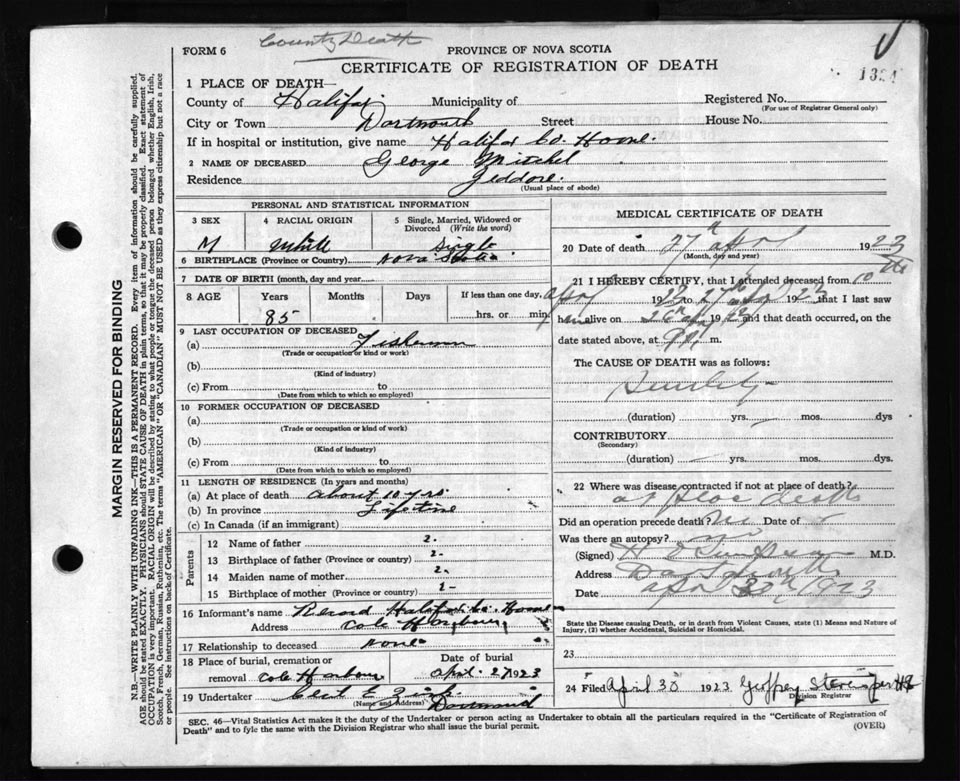 County Death
FORM 6
PROVINCE OF NOVA SCOTIA
CERTIFICATE OF REGISTRATION OF DEATH
1324
1 PLACE OF DEATH—
County of Halifax Municipality of Registered No.
(For use of Registrar General only)
City or Town Dartmouth Street House No.
If in hospital or institution, give name Halifax Co. Home.
2 NAME OF DECEASED George Mitchel
Residence Jeddore.
(Usual place of abode)
PERSONAL AND STATISTICAL INFORMATION
3 SEX 4 RACIAL ORIGIN 5 Single, Married, Widowed or Divorced (Write the word)
M White Single
6 BIRTHPLACE (Province or Country) Nova Scotia
7 DATE OF BIRTH (month, day and year)
8 AGE Years Months Days If less than one day,
85 hrs. or min.
9 LAST OCCUPATION OF DECEASED
(a) Fisherman
(Trade or occupation or kind of work)
(b)
(Kind of industry)
(c) From to
(Date from which to which so employed)
10 FORMER OCCUPATION OF DECEASED
(a)
(Trade or occupation or kind of work)
(b)
(Kind of industry)
(c) From to
(Date from which to which so employed)
11 LENGTH OF RESIDENCE (In years and months)
(a) At place of death about 10 yrs.
(b) In province Lifetime
(c) In Canada (if an immigrant)
Parents
12 Name of father
13 Birthplace of father (Province or country)
14 Maiden name of mother
15 Birthplace of mother (Province or country)
16 Informant's name Record Halifax Co. Home
Address Cole Harbour
17 Relationship to deceased None
18 Place of burial, cremation or removal Cole Harbour
Date of burial April 27 1923
19 Undertaker
(Name and Address) Dartmouth
MEDICAL CERTIFICATE OF DEATH
20 Date of death 27th April 1923
(Month, day and year)
21 I HEREBY CERTIFY, that I attended deceased from 10th
April 1923 to 27th April 1923 that I last saw
him alive on 26th 192 and that death occurred, on the
date stated above, at m.
The CAUSE OF DEATH was as follows:
Senility
(duration) yrs. mos. dys
CONTRIBUTORY
(Secondary)
(duration) yrs. mos. dys
22 Where was disease contracted if not at place of death?
at place death
Did an operation precede death? no Date of
Was there an autopsy? no
(Signed) M.D.
Address Dartmouth
Date April 1923
State the Disease causing Death, or in death from Violent Causes, state (1) Means and Nature of Injury, (2) whether Accidental, Suicidal or Homicidal.
23
24 Filed April 30 1923 Geoffrey Stevens
Division Registrar
SEC. 46—Vital Statistics Act makes it the duty of the Undertaker or person acting as Undertaker to obtain all the particulars required in the "Certificate of Registration of
Death" and to fyle the same with the Division Registrar who shall issue the burial permit. (OVER)
MARGIN RESERVED FOR BINDING
N.B.—WRITE PLAINLY WITH UNFADING INK—THIS IS A PERMANENT RECORD. Every item of information should be carefully supplied.
AGE should be stated EXACTLY. PHYSICIANS should STATE CAUSE OF DEATH in plain terms, so that it may be properly classified. Exact statement of
OCCUPATION is very important. RACIAL ORIGIN will be described by stating to what people or tongue the deceased person belonged whether English, Irish,
Scotch, French, German, Russian, Ruthenian, etc. The terms "AMERICAN" OR "CANADIAN" MUST NOT BE USED as they express citizenship but not a race
or people. See instructions on back of Certificate.